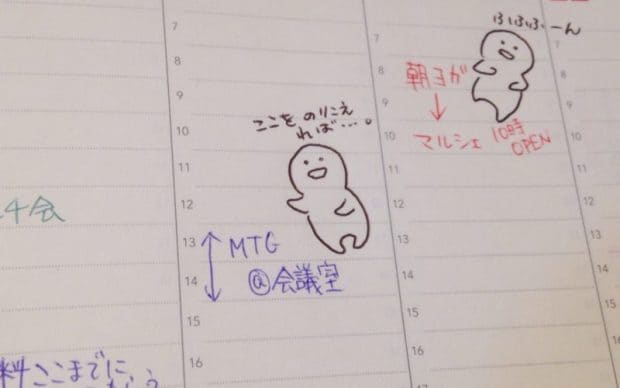 7
8
9
10
11
12
13
14
15
16
ここを のりこえ
れば‥‥。
MTG
@会議室
チ会
料ここまでに
7
8
9
10
11
12
13
14
15
16
ふふふーん
朝ヨガ
↓
マルシェ 10時
OPEN
7
8
9
10
11
12
13
14
15